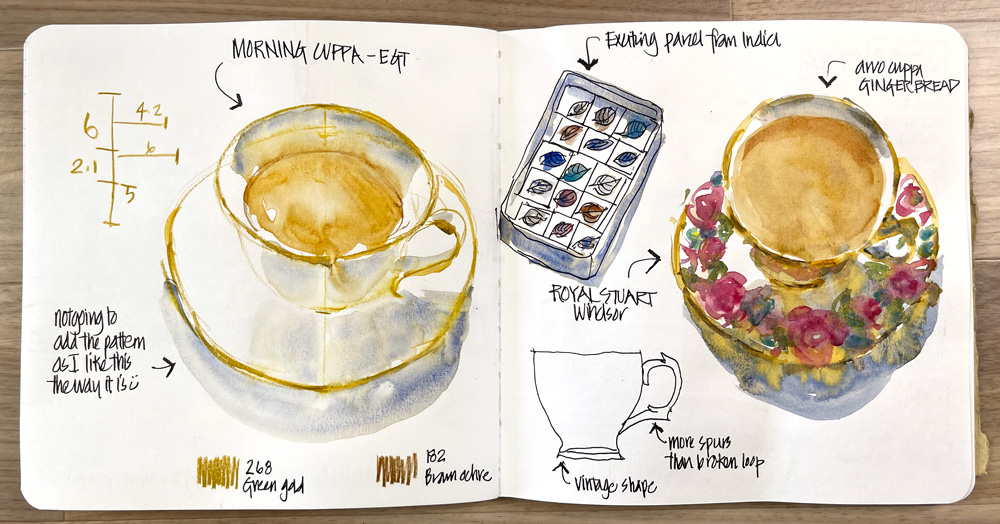 MORNING CUPPA - EGT
6
4.2
2.1
6
5
not going to
add the pattern
as I like this
the way it is
268
Green gold
182
Brown ochre
Exciting parcel from India
arvo cuppa
GINGERBREAD
ROYAL STUART
Windsor
more spurs
than broken loop
vintage shape